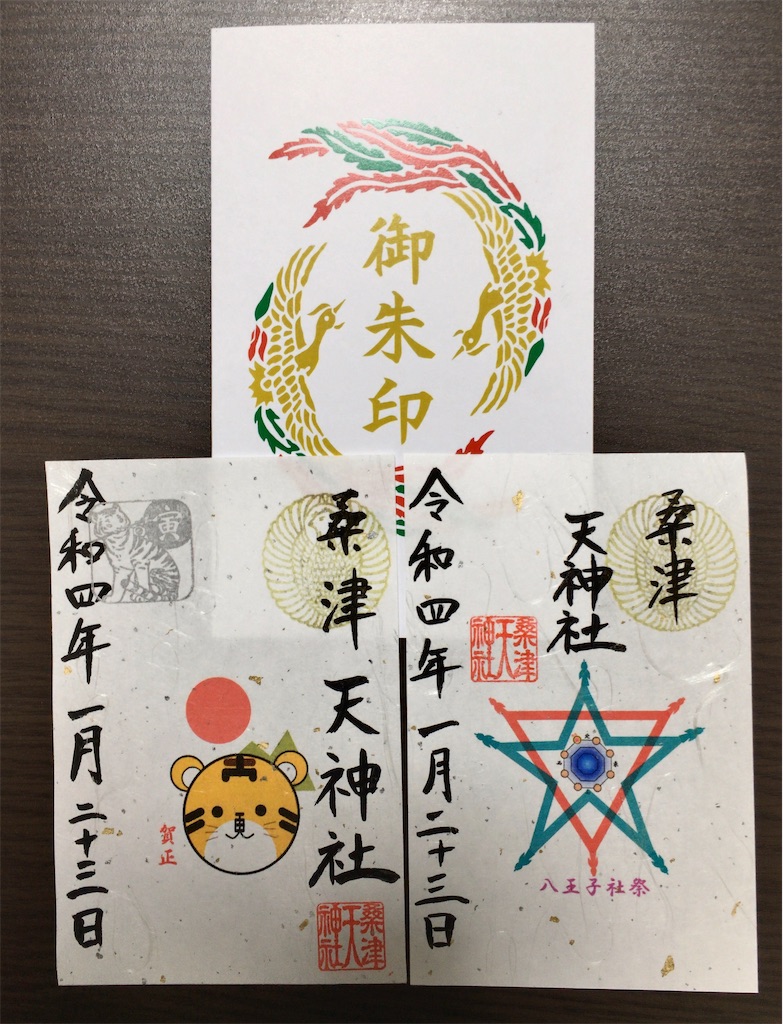 御朱印
桑津
天神社
寅
賀正
令和四年 一月 二十三日
桑津天神社
桑津
天神社
桑津天神社
八王子社祭
令和四年 一月 二十三日